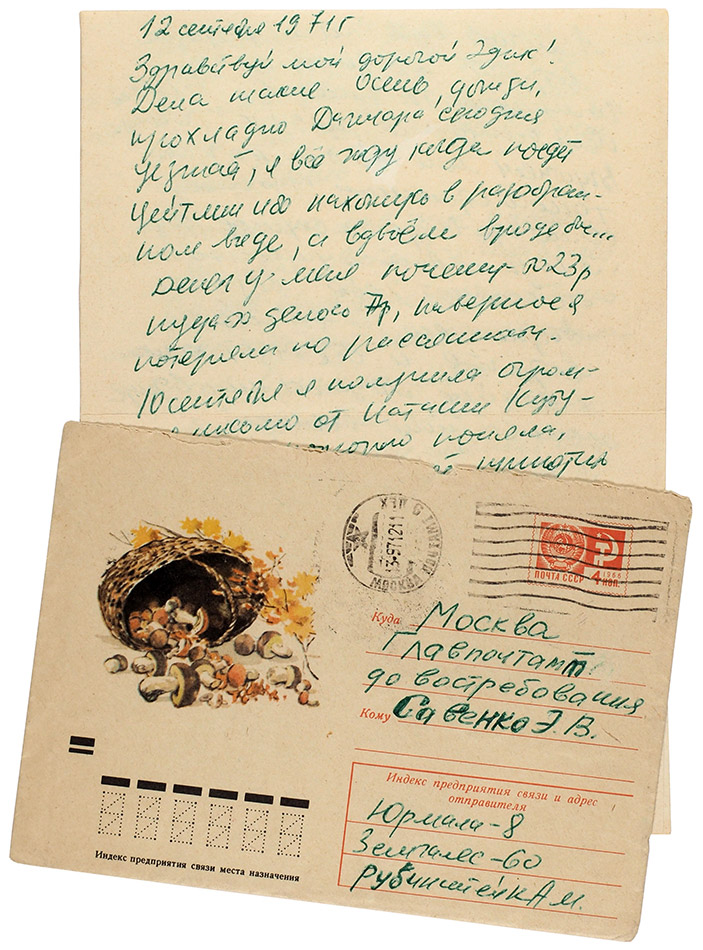 12 сентября 1971 г
Здравствуй мой дорогой Эдик!
Дела такие. Осень, дожди,
прохладно Дагмара сегодня
уезжает, я всё жду когда поедет
ибо нахожусь в разобран-
ном виде, а вдвоём вроде бы...
Денег у меня почему-то 23 р
куда-то делось 7р, наверное я
потеряла по рассеяности.
10 сентября я получила огром-
письмо от Наташи
поняла,
МОСКВА
ПОЧТА СССР
1966
4 КОП.
Куда Москва
Главпочтамт
до востребования
Кому Савенко Э.В.
Индекс предприятия связи и адрес
отправителя
Юрмала-8
Земгалес-60
Рубинштейн А М.
Индекс предприятия связи места назначения